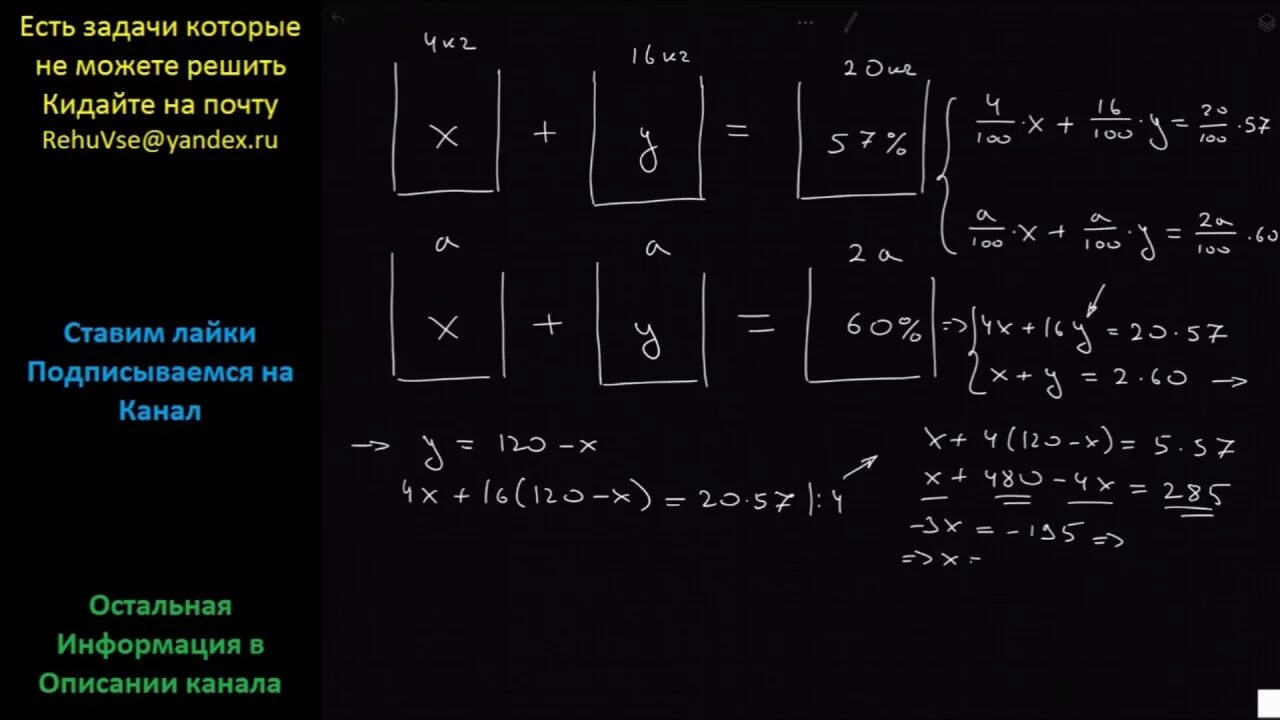 Есть задачи которые
не можете решить
Кидайте на почту
RehuVse@yandex.ru
Ставим лайки
Подписываемся на
Канал
Остальная
Информация в
Описании канала
4кг 16кг 20кг
x + y = 57%
4/100 · x + 16/100 · y = 20/100 · 57
a a 2a
x + y = 60%
a/100 · x + a/100 · y = 2a/100 · 60
=> 4x + 16y = 20·57
x + y = 2·60 →
→ y = 120 - x
4x + 16(120 - x) = 20·57 |:4
x + 4(120 - x) = 5·57
x + 480 - 4x = 285
-3x = -195 =>
=> x -